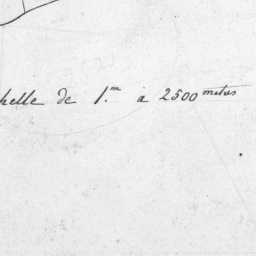 helle de 1.m a 2500 metres